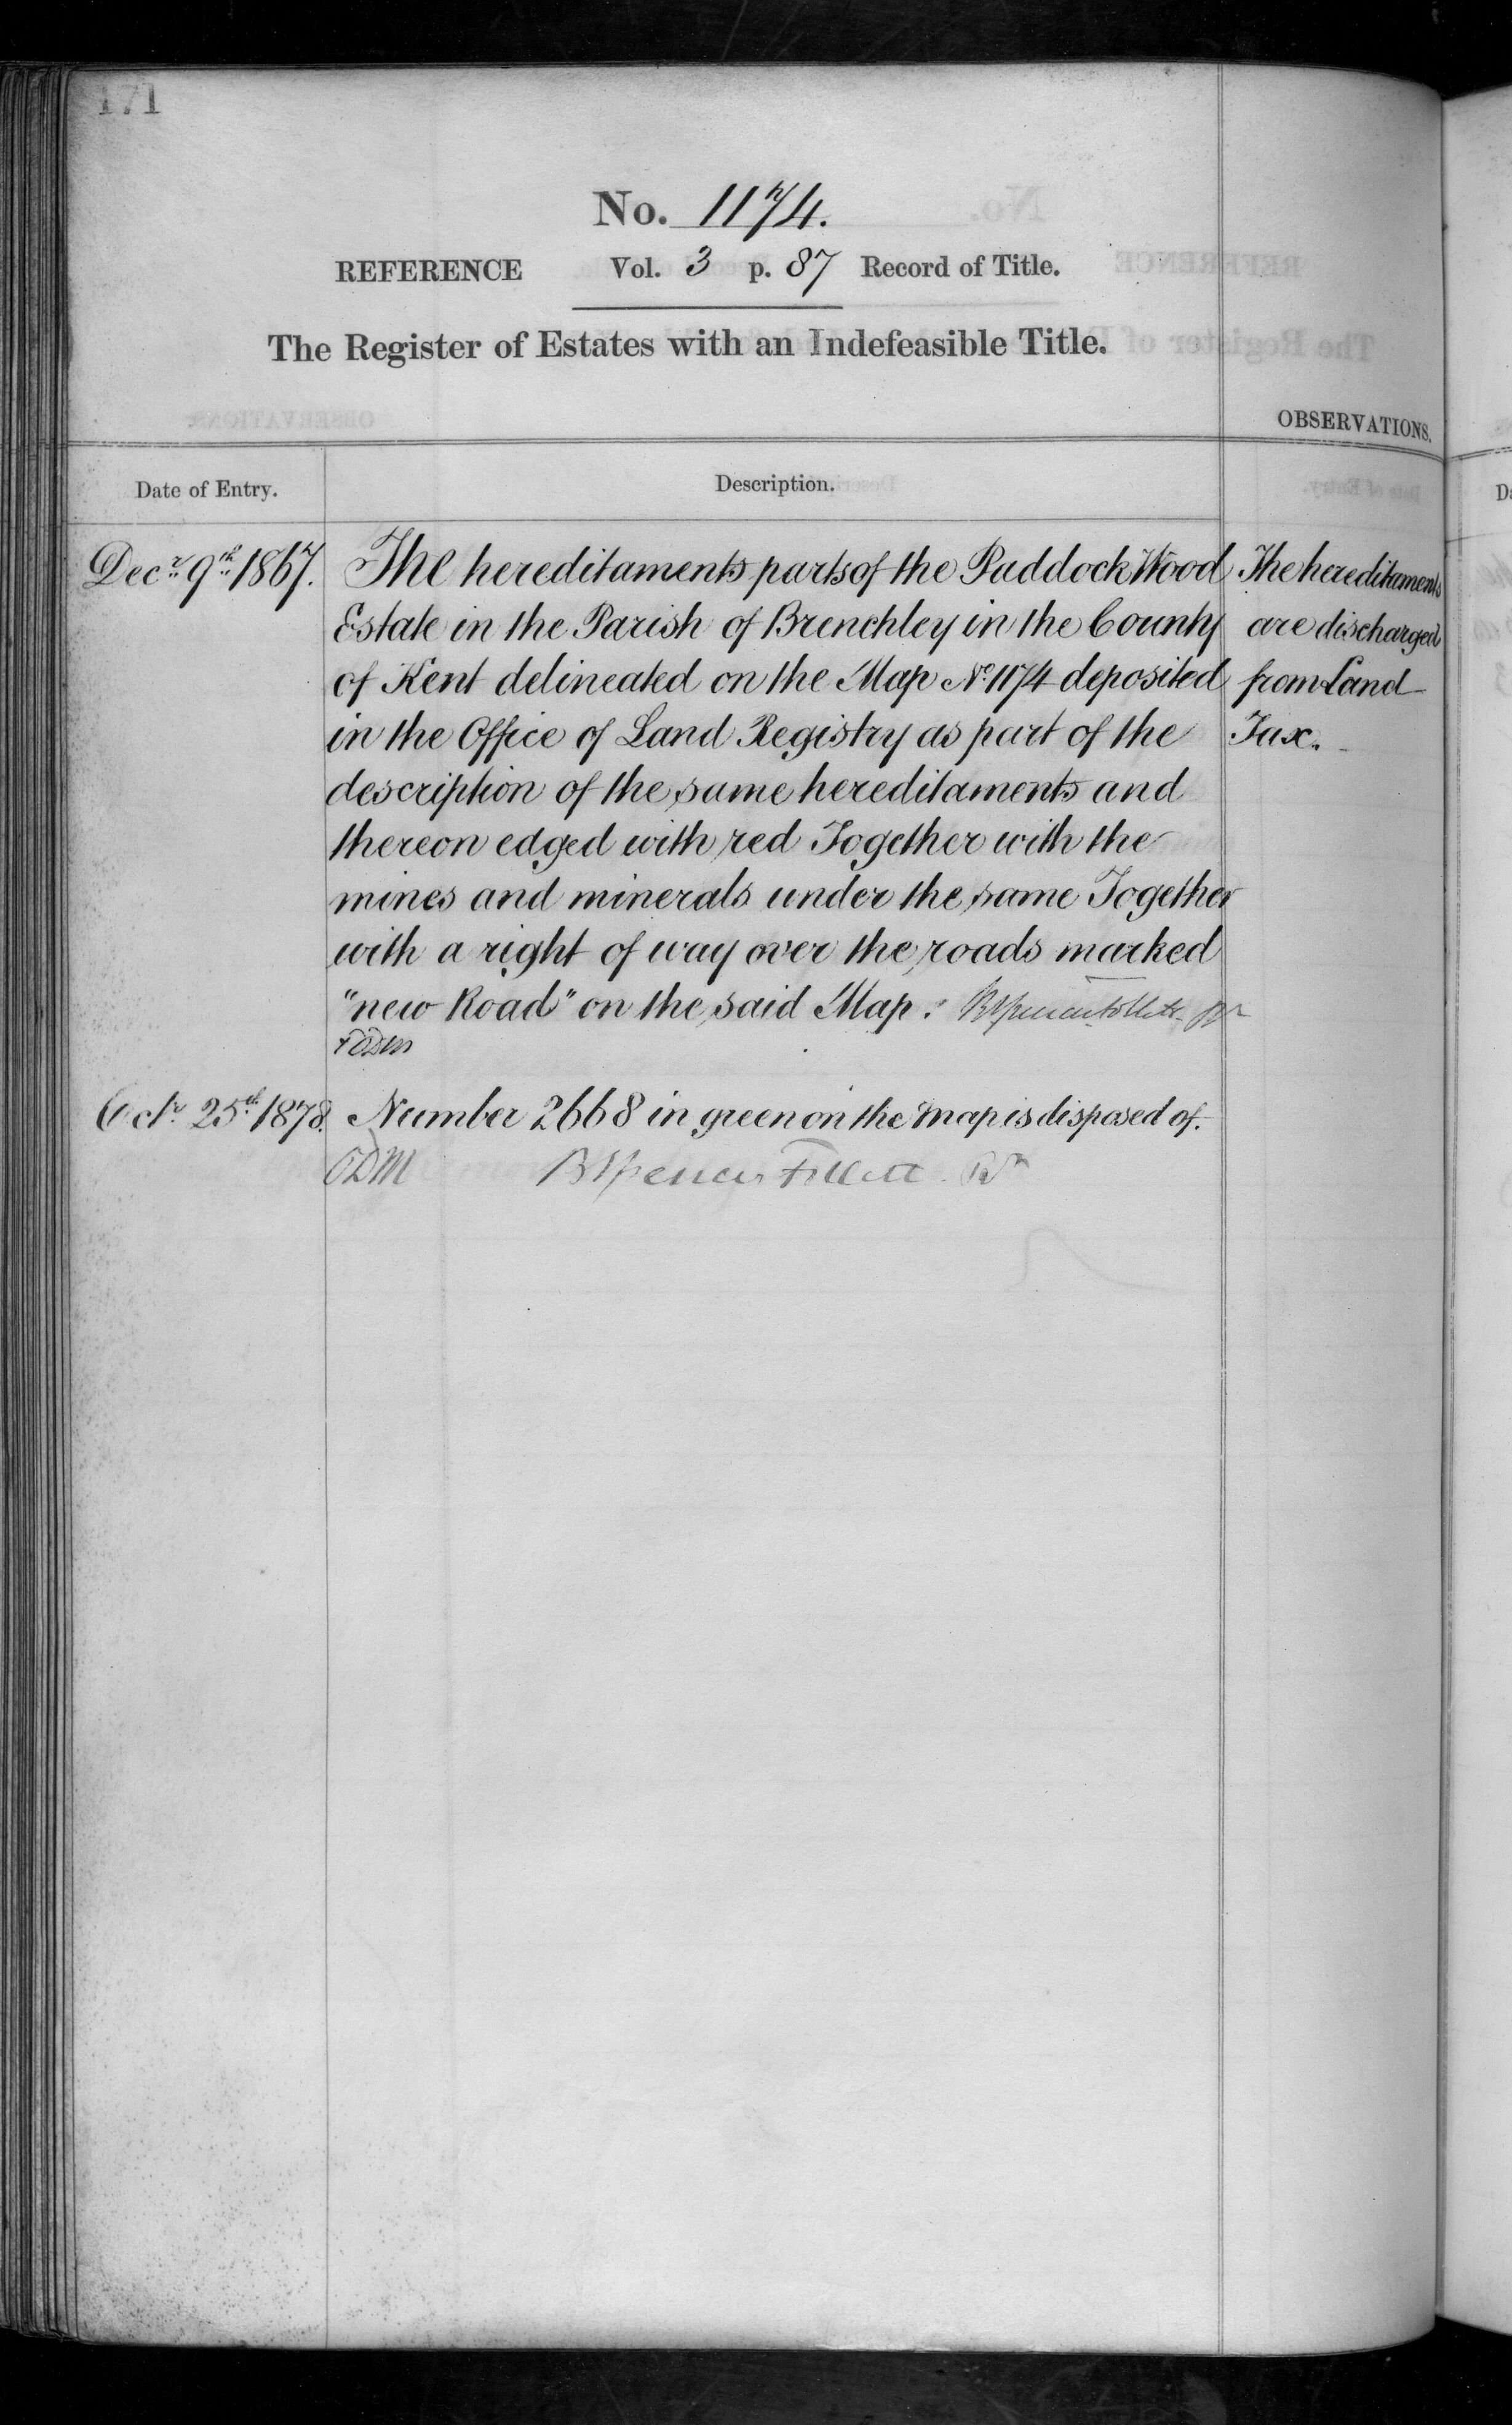 171
No. 1174.
REFERENCE Vol. 3 p. 87 Record of Title.
The Register of Estates with an Indefeasible Title.
OBSERVATIONS.
Date of Entry. Description.
Decr. 9th. 1867. The hereditaments parts of the Paddock Wood
Estate in the Parish of Brenchley in the County
of Kent delineated on the Map No. 1174 deposited
in the Office of Land Registry as part of the
description of the same hereditaments and
thereon edged with red Together with the
mines and minerals under the same Together
with a right of way over the roads marked
"new Road" on the said Map. BSpencer Follett Rr
The hereditaments
are discharged
from Land
Tax.
Octr. 25th. 1878. Number 2668 in green on the Map is disposed of.
ODM BSpencer Follett Rr